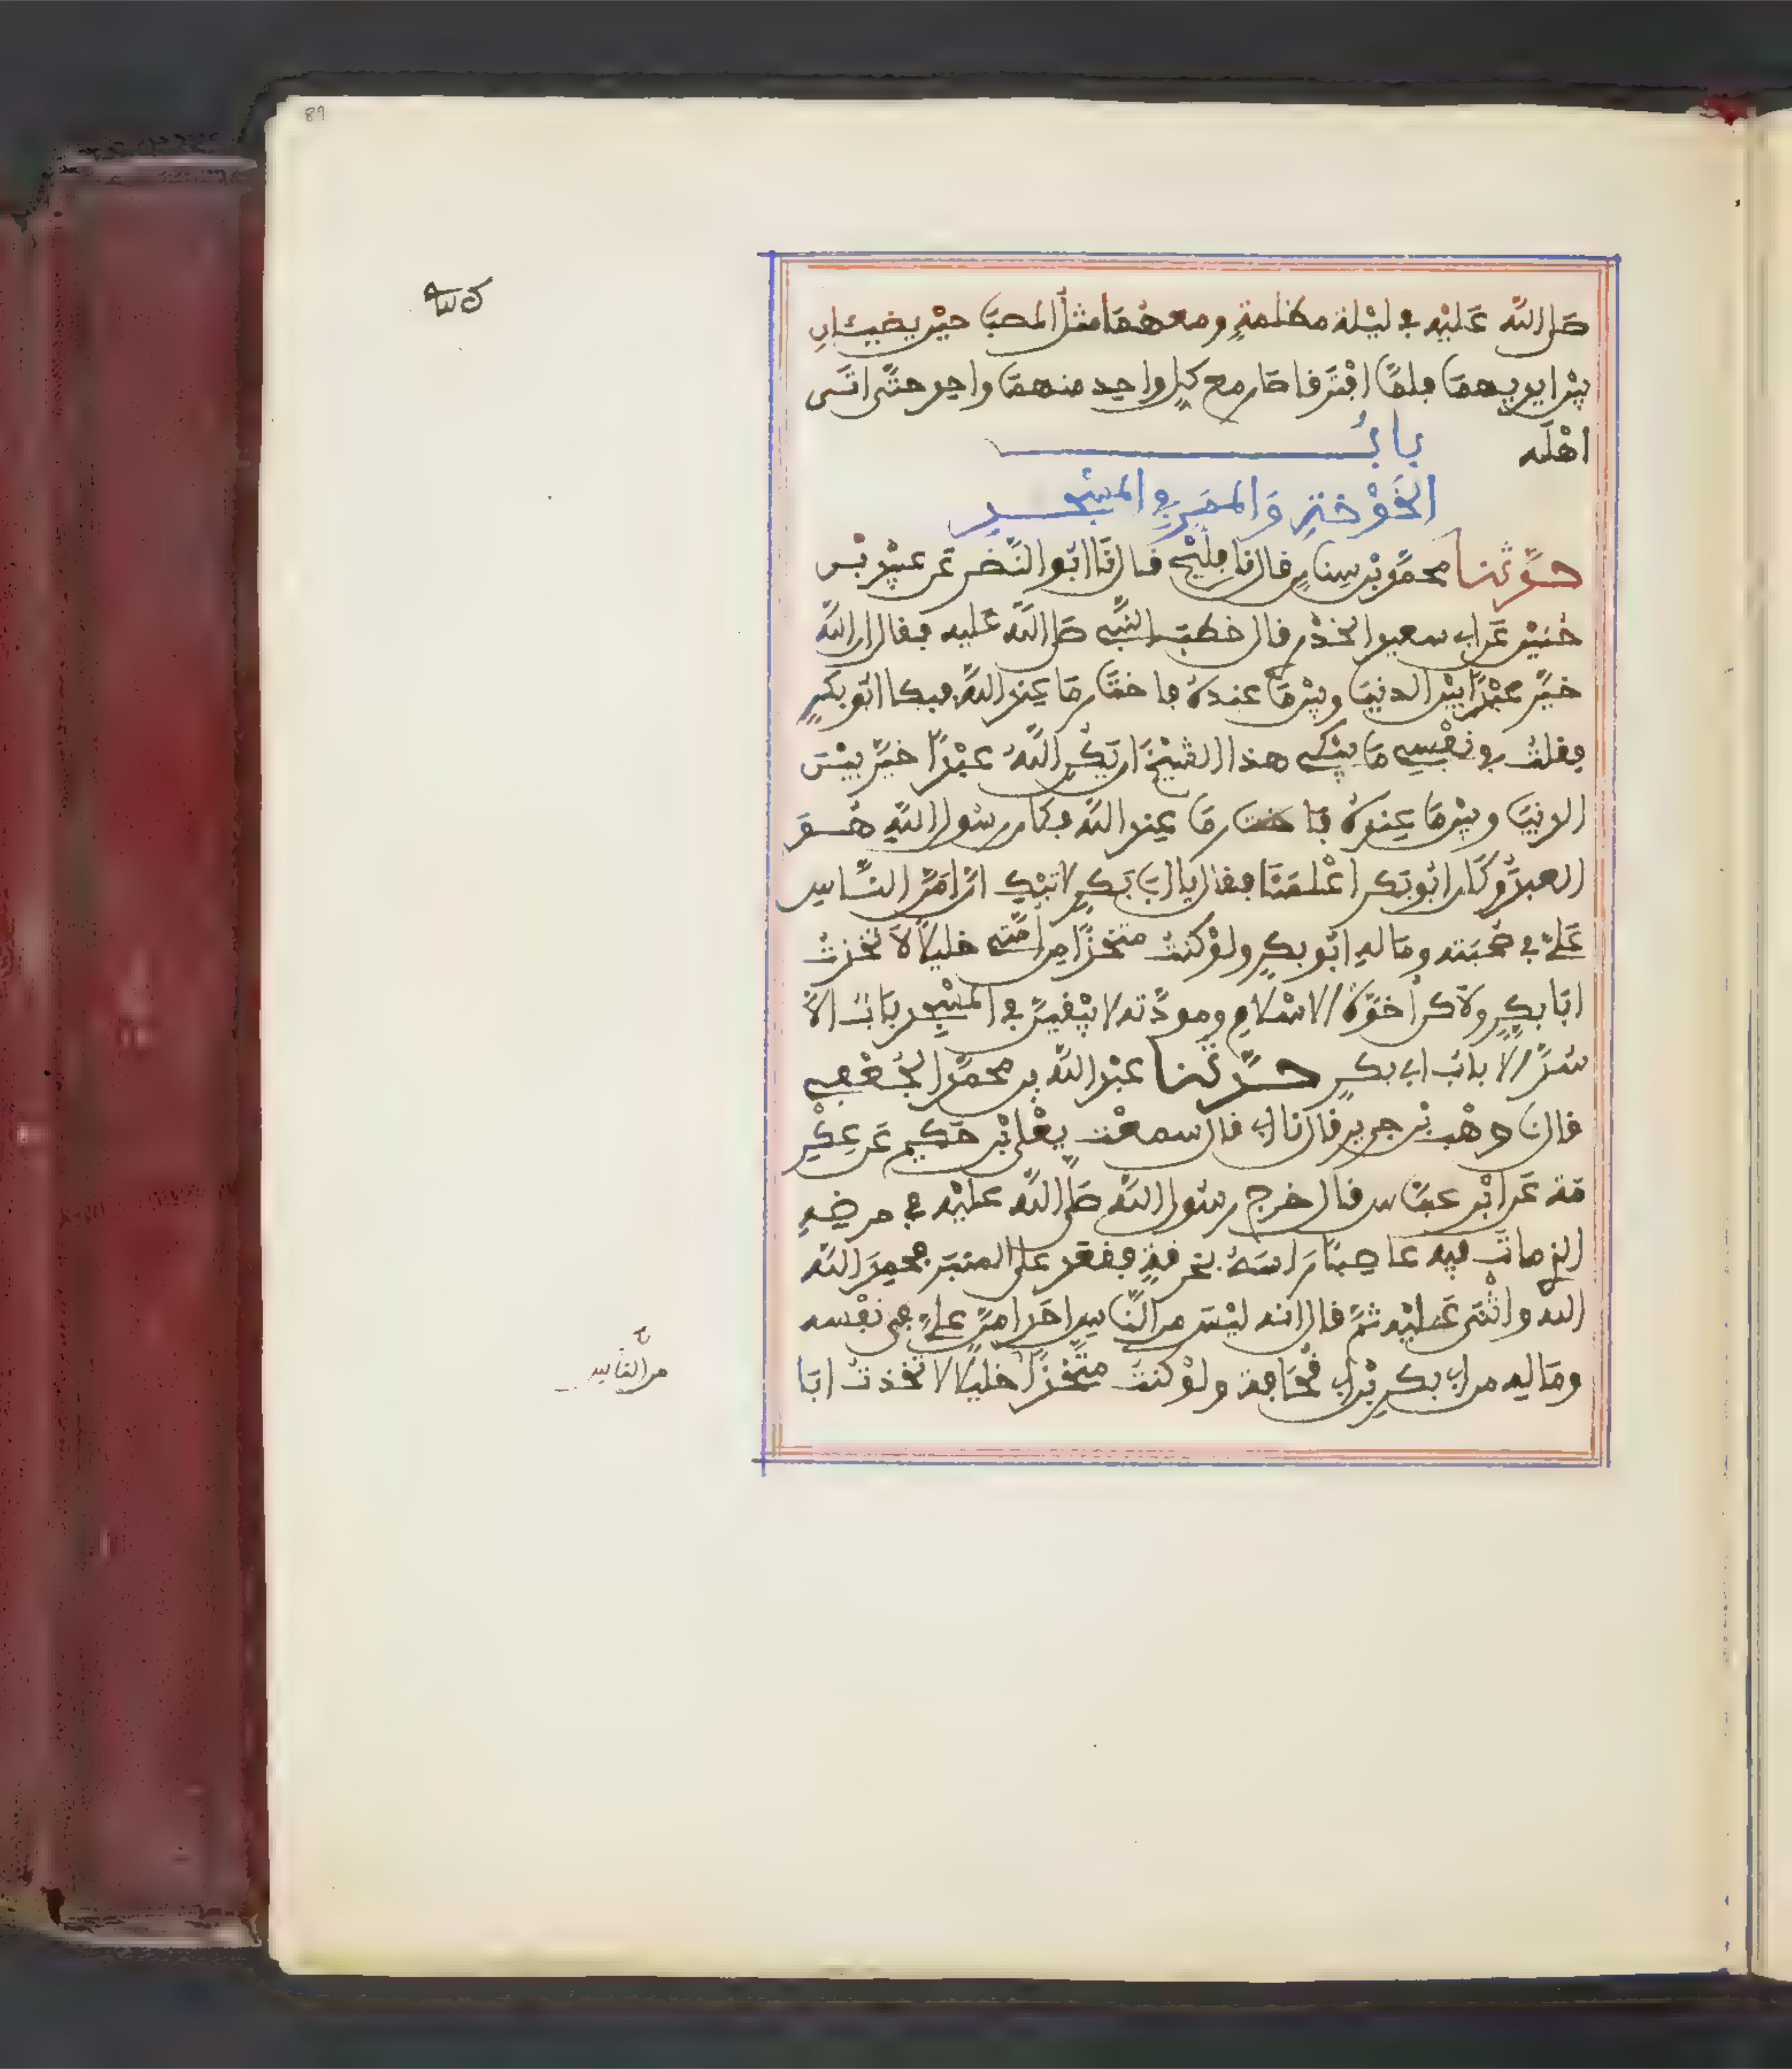 89
صلى الله عليه في ليلة مظلمة ومعهما مثل المصبا حين يضيئان
بين ايديهما فلما افترفا صار مع كل واحد منهما واحد حتى اتى
اهله
باب
الخوخة والممر في المسجد
حدثنا محمد بن سنان قال نا فليح قال نا ابو النضر عن عبيد بن
حنين عن ابي سعيد الخدري قال خطب النبي صلى الله عليه فقال ان الله
خير عبدا بين الدنيا وبين ما عنده فاختار ما عند الله فبكا ابو بكر
فقلت في نفسي ما يبكي هذا الشيخ ان يكن الله عبدا خير بين
الدنيا وبين ما عنده فاختار ما عند الله فكان رسول الله هو
العبد وكان ابو بكر اعلمنا فقال يا ابا بكر لا تبك ان امن الناس
علي في صحبته وماله ابو بكر ولو كنت متخذا من امتي خليلا لاتخذت
ابا بكر ولاكن اخوة الاسلام ومودته لا يبقين في المسجد باب الا
سد الا باب ابي بكر حدثنا عبد الله بن محمد الجعفي
قال نا وهب بن جرير قال نا ابي قال سمعت يعلى بن حكيم عن عكر
مة عن ابن عباس قال خرج رسول الله صلى الله عليه في مرضه
الذي مات فيه عاصبا راسه بخرقة فقعد على المنبر فحمد الله
الله واثنى عليه ثم قال انه ليس من الناس احد امن علي في نفسه
وماله من ابي بكر بن ابي قحافة ولو كنت متخذا خليلا لاتخذت ابا
من الناس